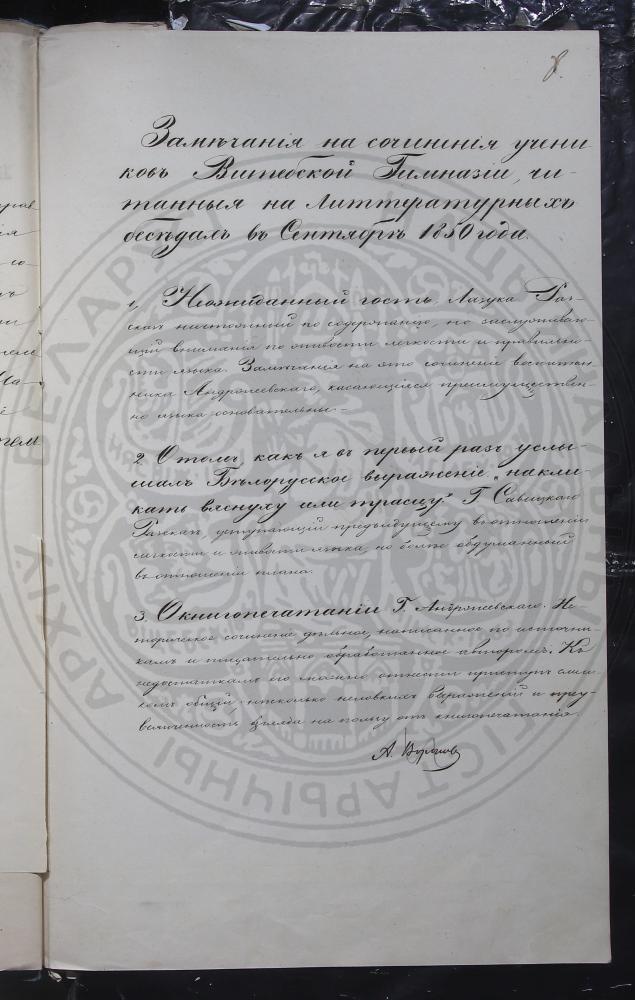 8.
Замѣчанія на сочиненія учени
ковъ Витебской Гимназіи, чи-
танныя на Литтературныхъ
бесѣдахъ въ Сентябрѣ 1850 года.
1, Неожиданный гость, Раз-
сказъ по содержанію, но заслуживаю-
щій вниманія по живости легкости и правильно-
сти языка. Замѣчанія на это сочиненіе воспитан-
ника Андріевскаго, касающіяся преимуществен-
но языка основательны.=
2. О томъ, какъ я въ первый разъ услы-
шалъ Бѣлорусское выраженіе „накли-
кать вяснуху или трасцу." Г. Савицкаго
Разсказъ, уступающій предъидущему въ отношеніи
легкости и живости языка, но болѣе обдуманный
въ отношеніи плана.
3. О книгопечатаніи Г. Андріевскаго. Ис-
торическое сочиненіе дѣльное, написанное по источни-
камъ и тщательно обработанное авторомъ. Къ
недостаткамъ его можно отнести приступъ слиш-
комъ общій, нѣсколько неловкихъ выраженій и преу-
величенность взгляда на пользу отъ книгопечатанія.
А.
БЕЛАРУСІ
ГІСТАРЫЧНЫ
АРХІЎ